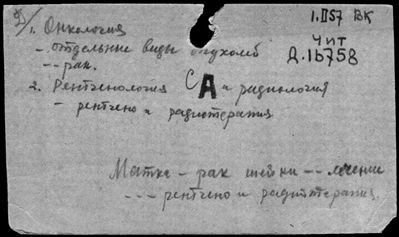 1. Онкология
I.II57 ВК
- отдельные виды опухолей
ЧИТ
-- рак.
Д.16758
2. Рентгенология и радиология
СА
- рентгено и радиотерапия
Матка - рак шейки -- лечение
--- рентгено и радиотерапия.